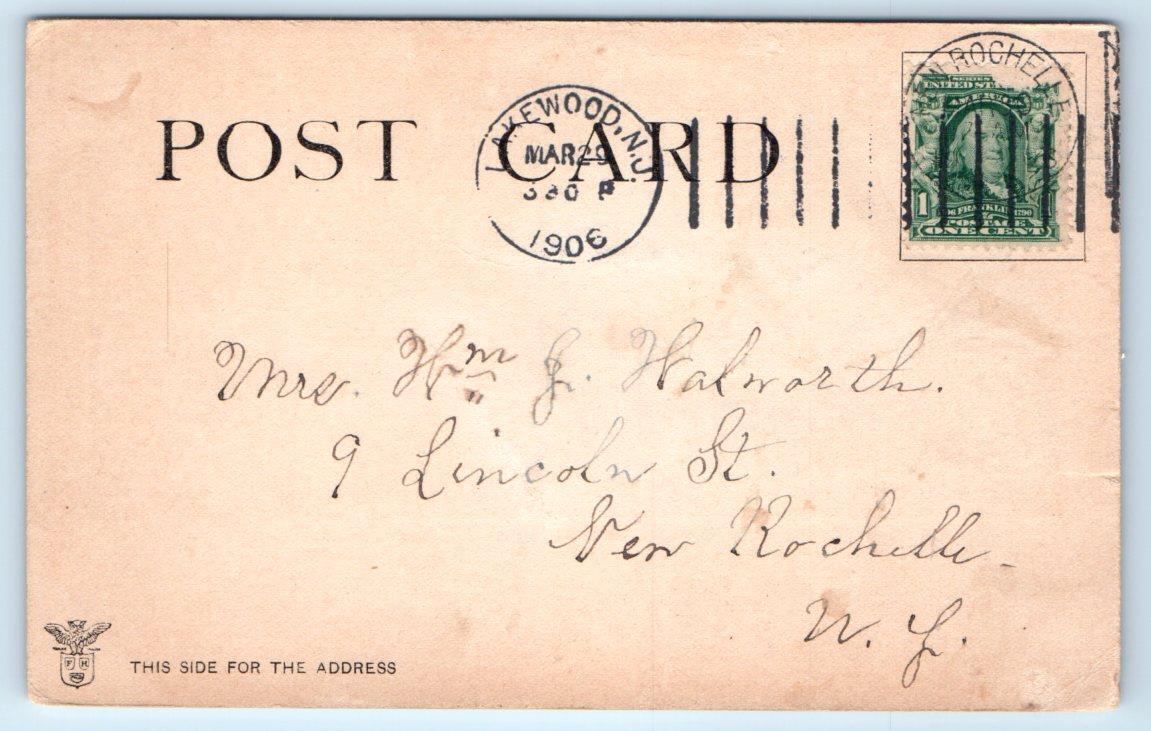 POST CARD
LAKEWOOD, N.J.
MAR 29
330 P
1906
NEW ROCHELLE
SERIES 1902
UNITED STATES OF AMERICA
1
FRANKLIN 1790
POSTAGE
ONE CENT
Mrs. Wm J. Walworth.
9 Lincoln St.
New Rochelle.
N. Y.
F H
THIS SIDE FOR THE ADDRESS